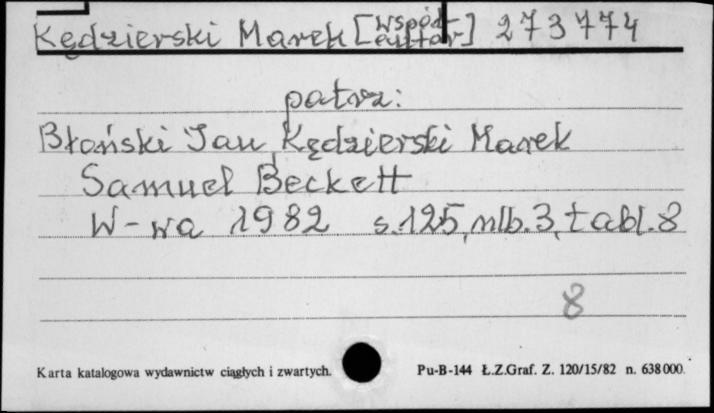 Kędzierski Marek [współautor] 273774
patrz:
Błoński Jan, Kędzierski Marek
Samuel Beckett
W-wa 1982 s. 125, nlb. 3, tabl. 8
8
Karta katalogowa wydawnictw ciągłych i zwartych. Pu-B-144 Ł.Z.Graf. Z. 120/15/82 n. 638000.